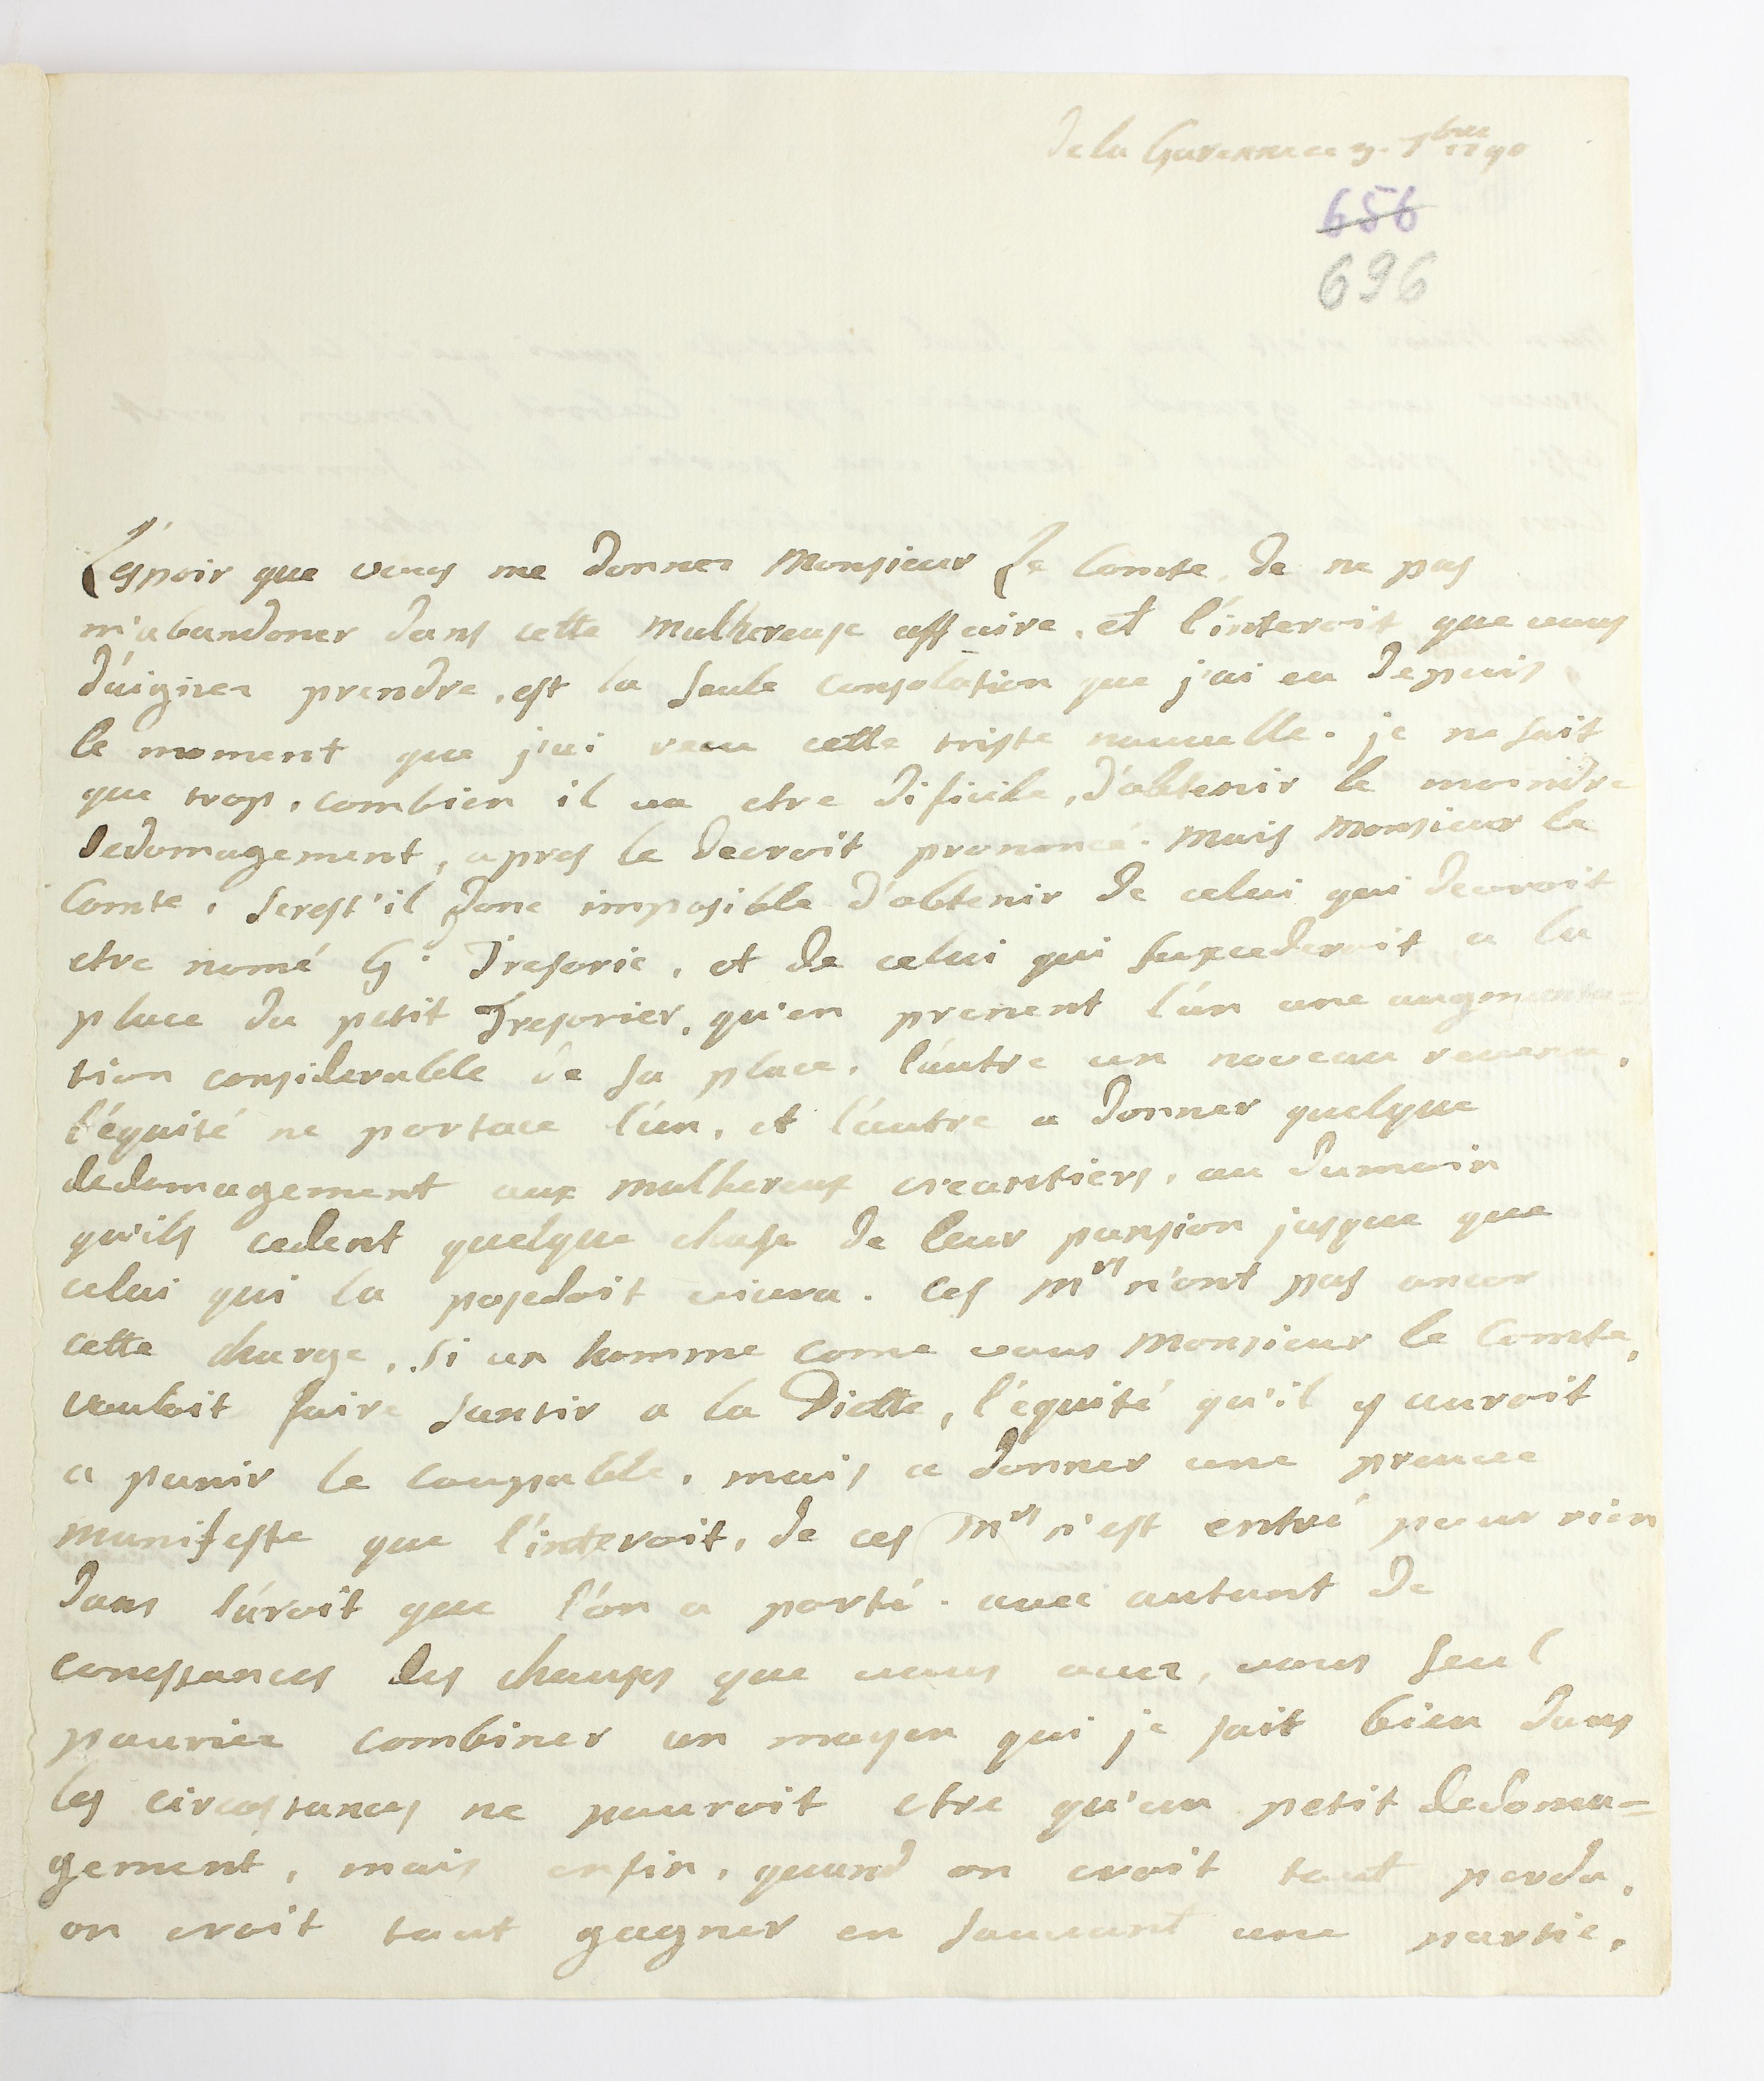 de la Garenne ce 3. 7bre 1790
656
696
L'espoir que vous me donnez Monsieur Le Comte, de ne pas
m'abandoner dans cette malhereuse affaire, et l'interoit que vous
d'aignez prendre, est la seule consolation que j'ai eu depuis
le moment que j'ai recu cette triste nouvelle. je ne sait
que trop, combien il va etre dificile, d'obtenir le moindre
dedomagement, apres le decroit prononcé. Mais Monsieur le
Comte, serest'il donc imposible d'obtenir de celui qui devroit
etre nomé G. Tresorie, et de celui qui suxcederoit a la
place du petit Tresorier, qu'en prenent l'un une augmenta=
tion considerable de sa place, l'autre un noveau revenu,
l'équité ne portace l'un, et l'autre a donner quelque
dedomagement aux malhereux creantiers, au dumoin
qu'ils cedent quelque chose de leur pansion jusque que
celui qui la posedoit vivra. Ces Mrs n'ont pas ancor
cette charge, si un homme come vous Monsieur le Comte,
vouloit faire santir a la Diette, l'équité qu'il y auroit
a punir le coupable, mais a donner une preuve
manifeste que l'interoit, de ces Mrs n'est entré pour rien
dans l'aroit que l'on a porté. avec autant de
conessances des chauses que vous avez, vous seul
pouriez combiner un moyen qui je sait bien dans
les circostances ne pouroit etre qu'un petit dedoma=
gement, mais enfin, quand on croit tout perdu,
on croit tout gagner en sauvant une partie,